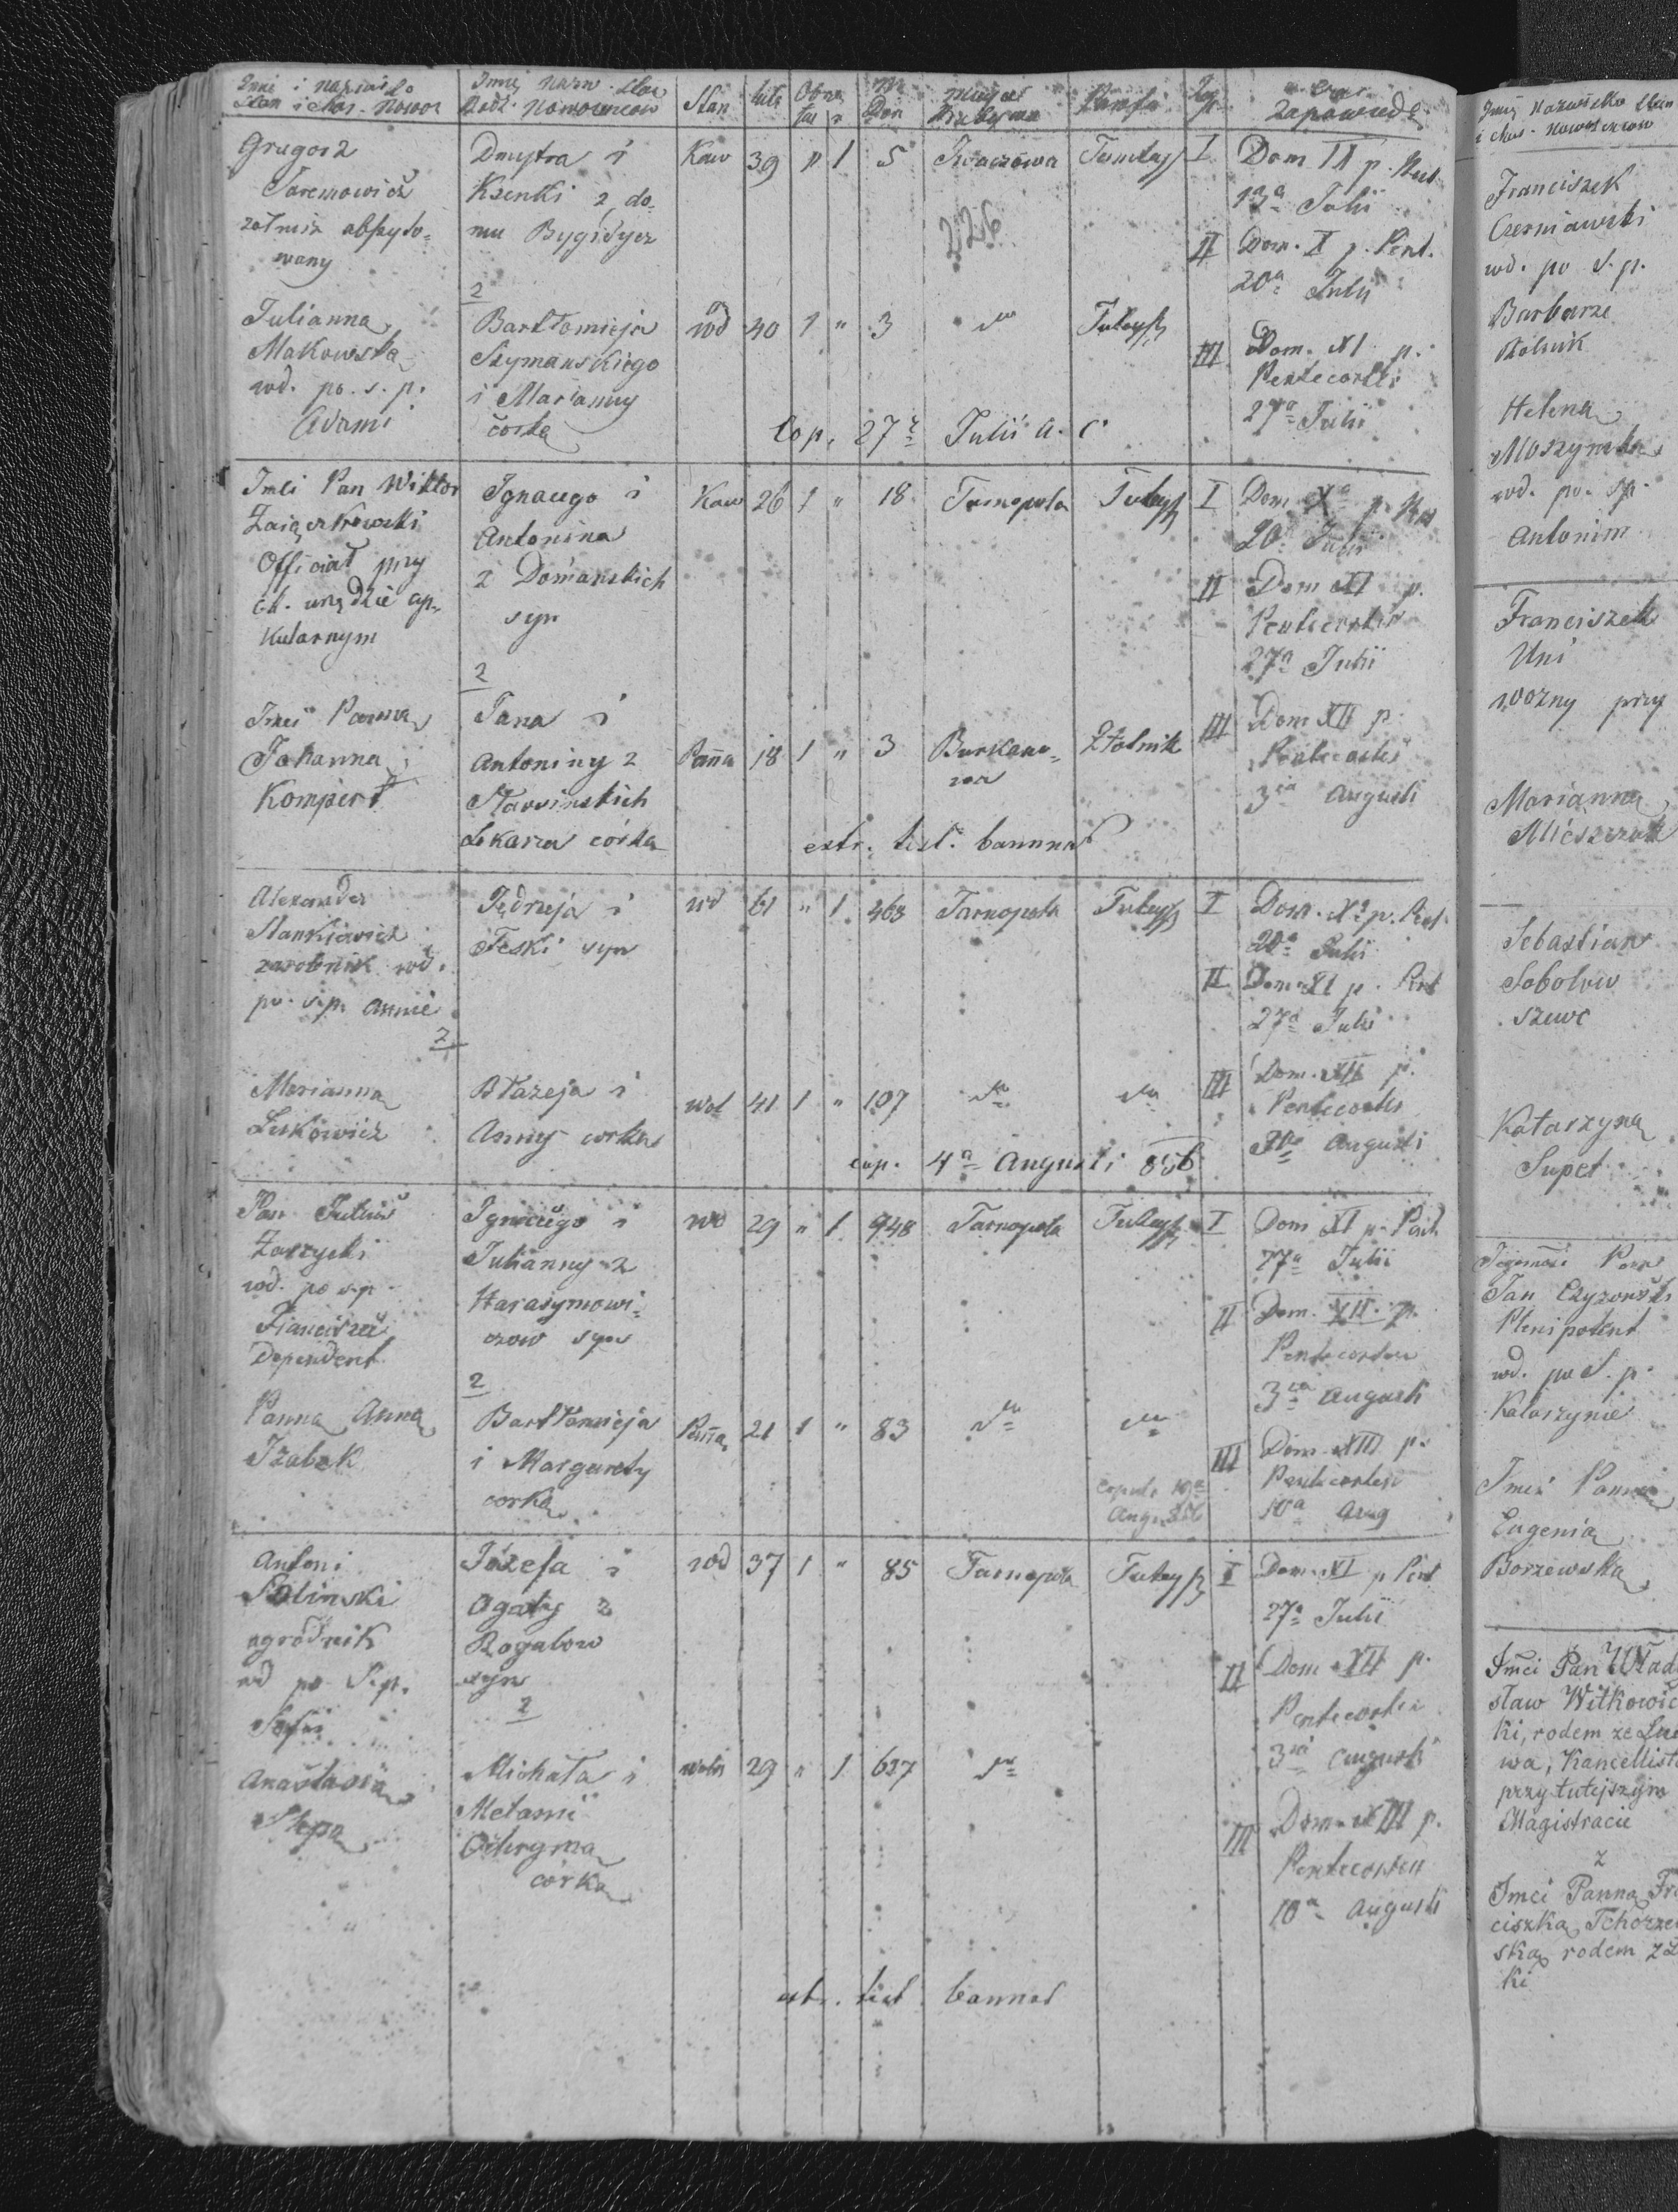 Imie i Nazwisko
Stan i char. Nowoż
Imię Nazw. Stan
Rodz. Nowożeńców
Stan
lata
Obrz
łac r
Nr
Dom
Miejsce
Parafia
Czas
Zapowiedzi
Grzegorz
Jaremowicz
żołnierz abszyto=
wany
Dmytra i
Ksenki z do=
mu
z
Kaw 39 " 1 5 Iwaczowa
226
I Dom IX p. Pent
13a Julii
II Dom. X p. Pent.
20a Julii
Julianna
Makowska
wd. po. s. p.
Adami
Bartłomieja
Szymanskiego
i Marianny
corka
wd 40 1 " 3 dto Tutejsz
III Dom. XI p.
Pentecostes
27a Julii
Cop. 27a Julii a. c.
Imci Pan Wiktor
Official przy
ck. urzędzie cyr=
kularnym
Ignacego i
Antonina
z Domanskich
syn
z
Kaw 26 1 " 18 Tarnopola Tutejsz
I Dom Xa p. Pent
20a Julii
II Dom XI p.
Pentecostes
27a Julii
Imci Panna
Johanna
Kompert
Jana i
Antoniny z
Lekarza córka
Panna 18 1 " 3 Burkano=
wa
Złotnik
III Dom XII p.
Pentecostes
3cia Augusti
extr. test. bannor
Alexander
Stankiewicz
zarobnik wd.
po. s.p. Annie
z
Jędrzeja i
Teski syn
wd 61 " 1 463 Tarnopola Tutejsz
I Dom. Xa p. Pent.
20a Julii
II Dom XI p. Pent
27a Julii
Marianna
Leskowicz
Błażeja i
Anny corka
wd 41 1 " 107 dto dto
III Dom. XII p.
Pentecostes
3cia Augusti
cop. 4a Augusti 856
Pan Julius
Zarzycki
wd. po s.p.
Franciszce
Dependent
Ignacego i
Julianny z
Harasymowi=
czow syn
z
wd 29 " 1 948 Tarnopola Tutejsz
I Dom XI p. Pent
27a Julii
II Dom. XII. p.
Pentecosten
3cia Augusti
Panna Anna
Izabek
Bartłomieja
i Margarety
corka
Panna 21 1 " 83 dto dto
III Dom XIII p.
Pentecosten
10a Aug
Copul. 10a
Aug. 856
Antoni
Solinski
ogrodnik
wd po S.p.
Sofii
Józefa i
Agaty z
Rogalow
syn
z
wd 37 1 " 85 Tarnopola Tutejsz
I Dom XI p Pent
27a Julii
II Dom XII p.
Pentecosten
3cia Augusti
Anastasia
Stepa
Michała i
Melanii
córka
wolna 29 " 1 627 dto
III Dom XIII p.
Pentecosten
10a Augusti
extr. test bannor
Imię Nazwisko Stan
i char. Nowożencow
Franciszek
Czerniawski
wd. po S. p.
Barbarze
Helena
Moszynska
wd. po. sp.
Antonim
Franciszek
Uni
woźny przy
Marianna
Sebastian
Sobolow
szewc
Katarzyna
Supel
Jegomość Pan
Jan
Plenipotent
wd. po S. p.
Katarzynie
Imci Panna
Eugenia
Borzewska
Imci Pan Wład
sław Witkowic
ki, rodem ze Lwo
wa, Kancellista
przy tutejszym
Magistracie
z
Imci Panna Fra
ciszka Tchorzew
ska rodem z
ki